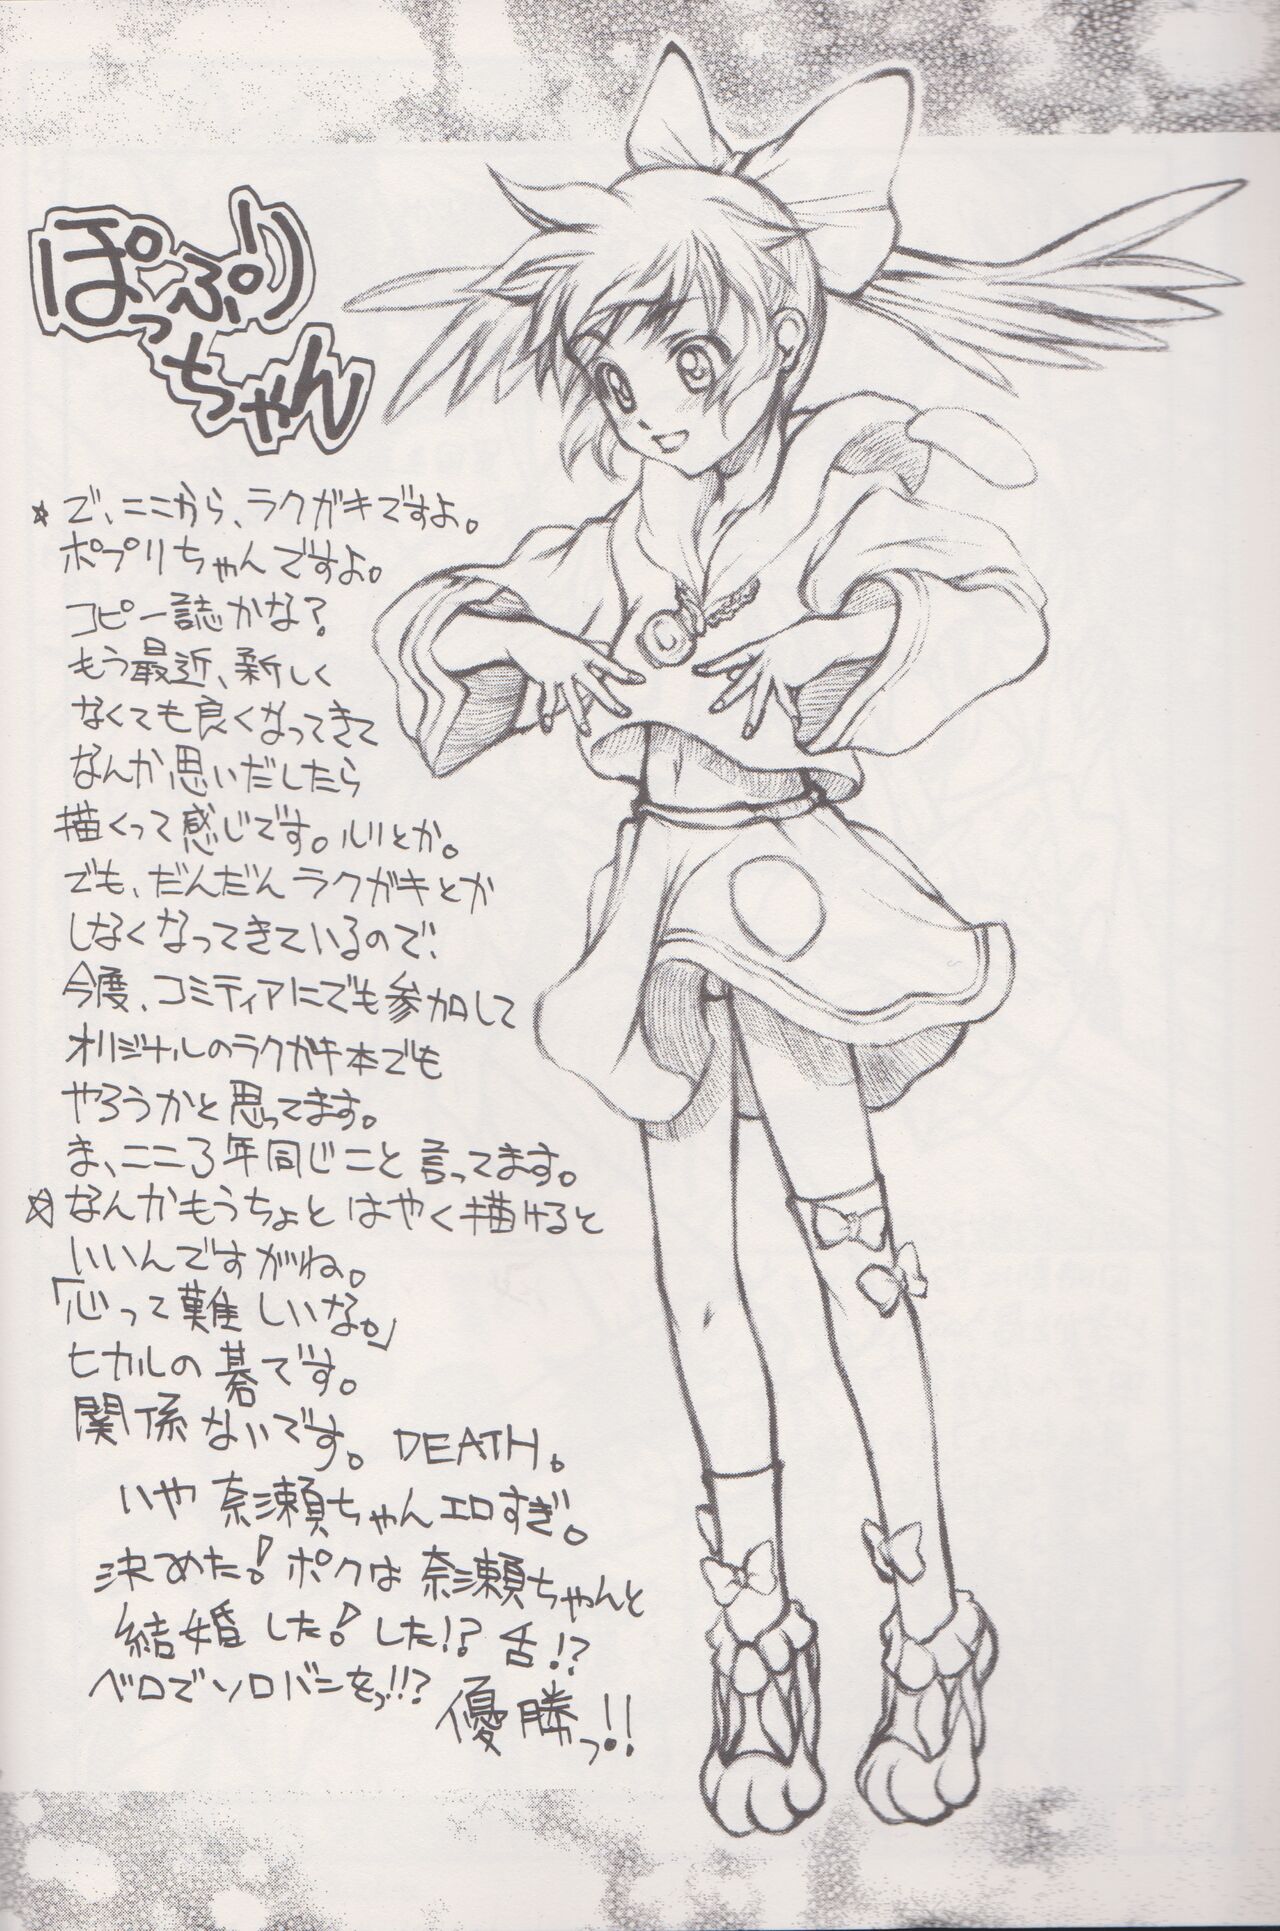 ぽっぷり
ちゃん
☆で、ここから、ラクガキですよ。
ポプリちゃんですよ。
コピー誌かな?
もう最近、新しく
なくても良くなってきて
なんか思いだしたら
描くって感じです。ルリとか。
でも、だんだんラクガキとか
しなくなってきているので、
今度、コミティアにでも参加して
オリジナルのラクガキ本でも
やろうかと思ってます。
ま、ここ3年同じこと言ってます。
☆なんかもうちょとはやく描けると
いいんですがね。
「心って難しいな。」
ヒカルの碁です。
関係ないです。DEATH。
いや奈瀬ちゃんエロすぎ。
決めた!ボクは奈瀬ちゃんと
結婚した!した!?舌!?
ベロでソロバンをっ!!?
優勝っ!!